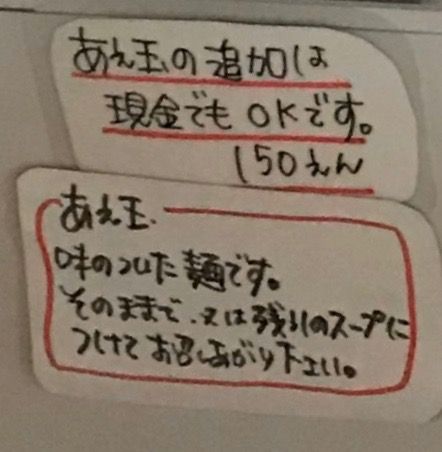 あえ玉の追加は
現金でもOKです。
150えん
あえ玉.
味のついた麺です。
そのままで、又は残りのスープに
つけてお召しあがり下さい。